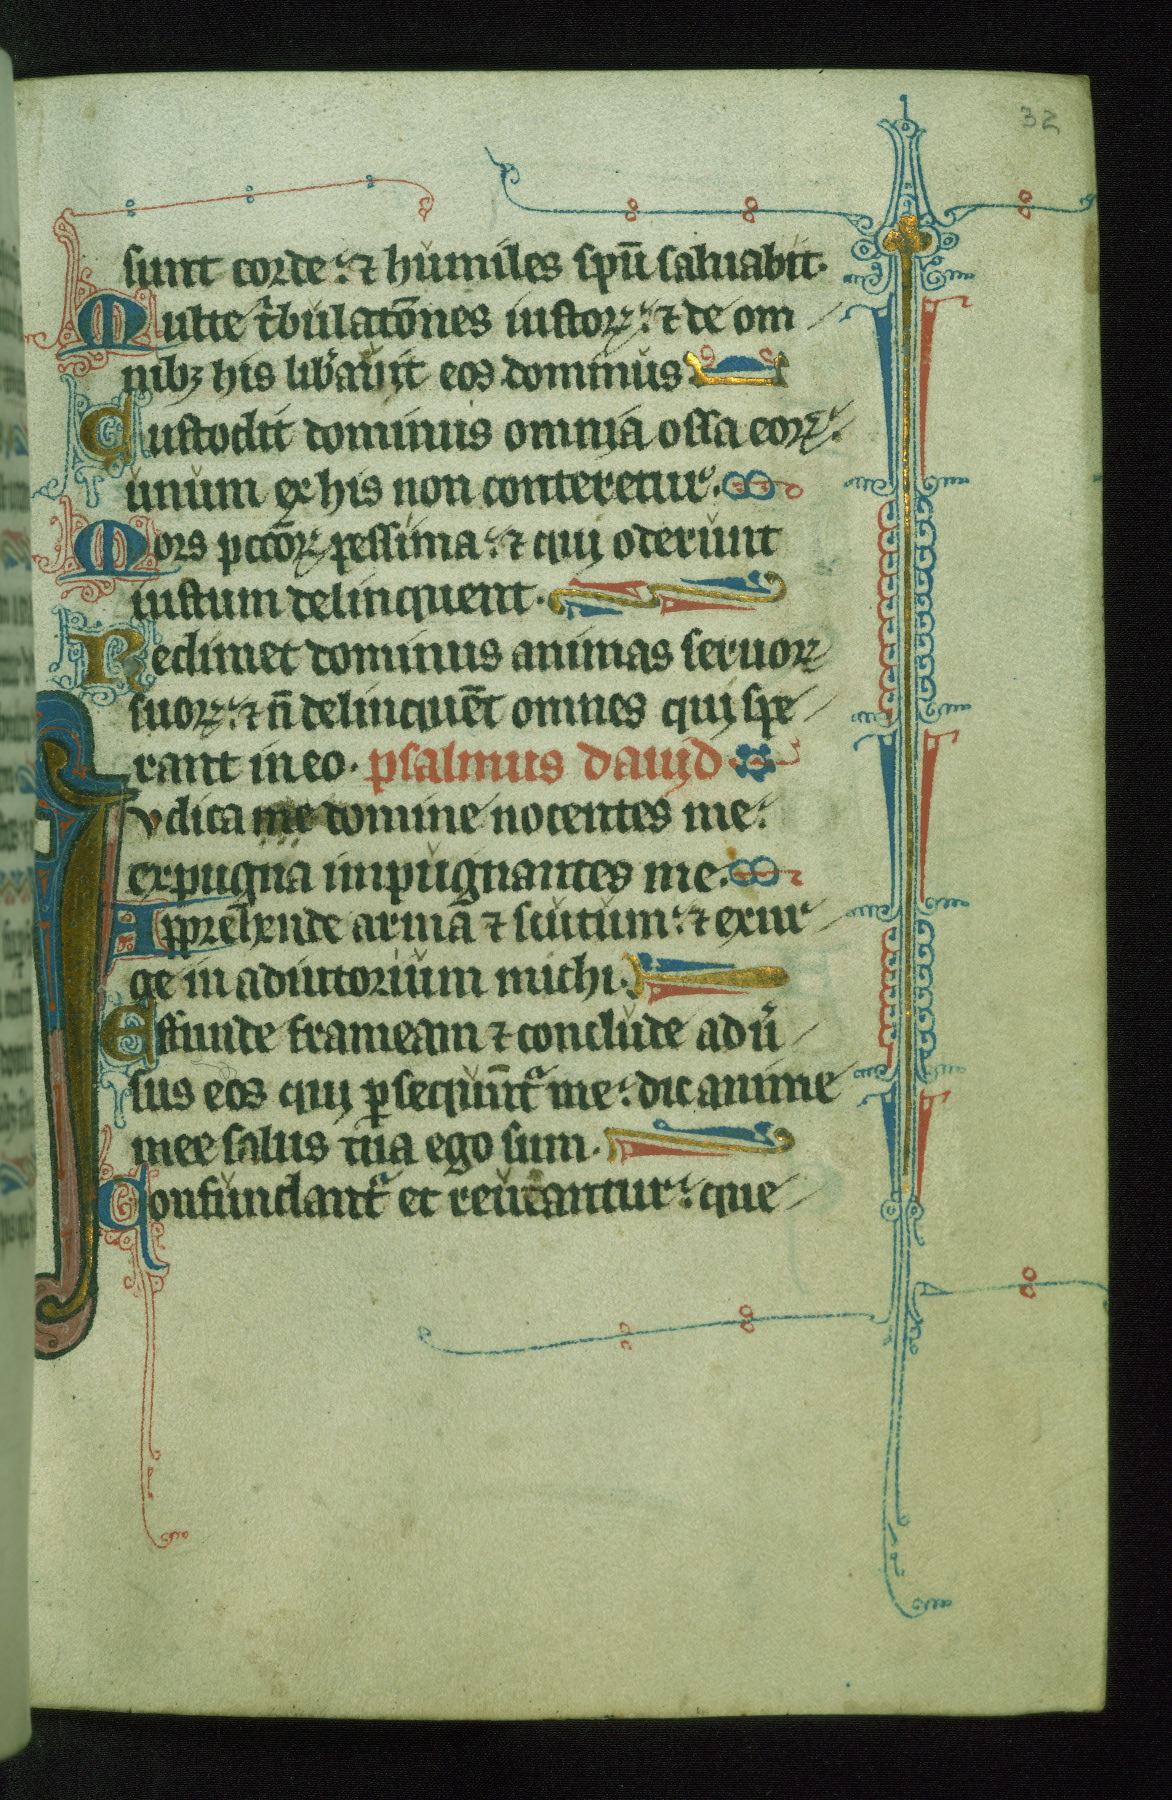 32
sunt corde: ⁊ humiles spū saluabit.
Multe tͥbulatōnes iustoꝝ: ⁊ de om
nibꝫ his libͣauit eos dominus
Custodit dominus omnia ossa eoꝝ:
unum ex his non conteretur.
Mors pctōꝝ pessima: ⁊ qui oderunt
iustum delinquent.
Redimet dominus animas seruoꝝ
suoꝝ: ⁊ ñ delinquēt omnes qui spe
rant in eo. psalmus dauid
Iudica me domine nocentes me:
expugna impugnantes me.
Apprehende arma ⁊ scutum: ⁊ exur
ge in adiutorium michi.
Effunde frameam ⁊ conclude adu̾
sus eos qui ꝑsequūtͬ me: dic anime
mee salus tua ego sum.
Confundantͬ et reu̾eantur: que